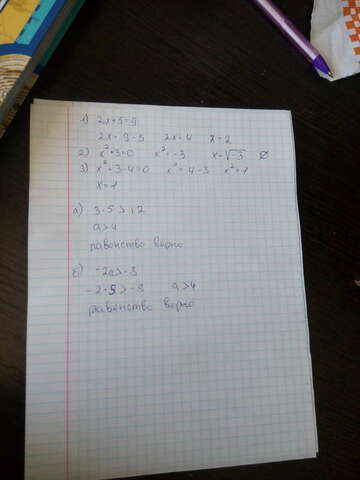 1) 2x+5=9
2x=9-5 2x=4 x=2
2) x²+3=0 x²=-3 x=√-3 ∅
3) x²+3-4=0 x²=4-3 x²=1
x=1
а) 3·5>12
a>4
равенство верно
б) -2a>-8
-2·5>-8 a>4
равенство верно